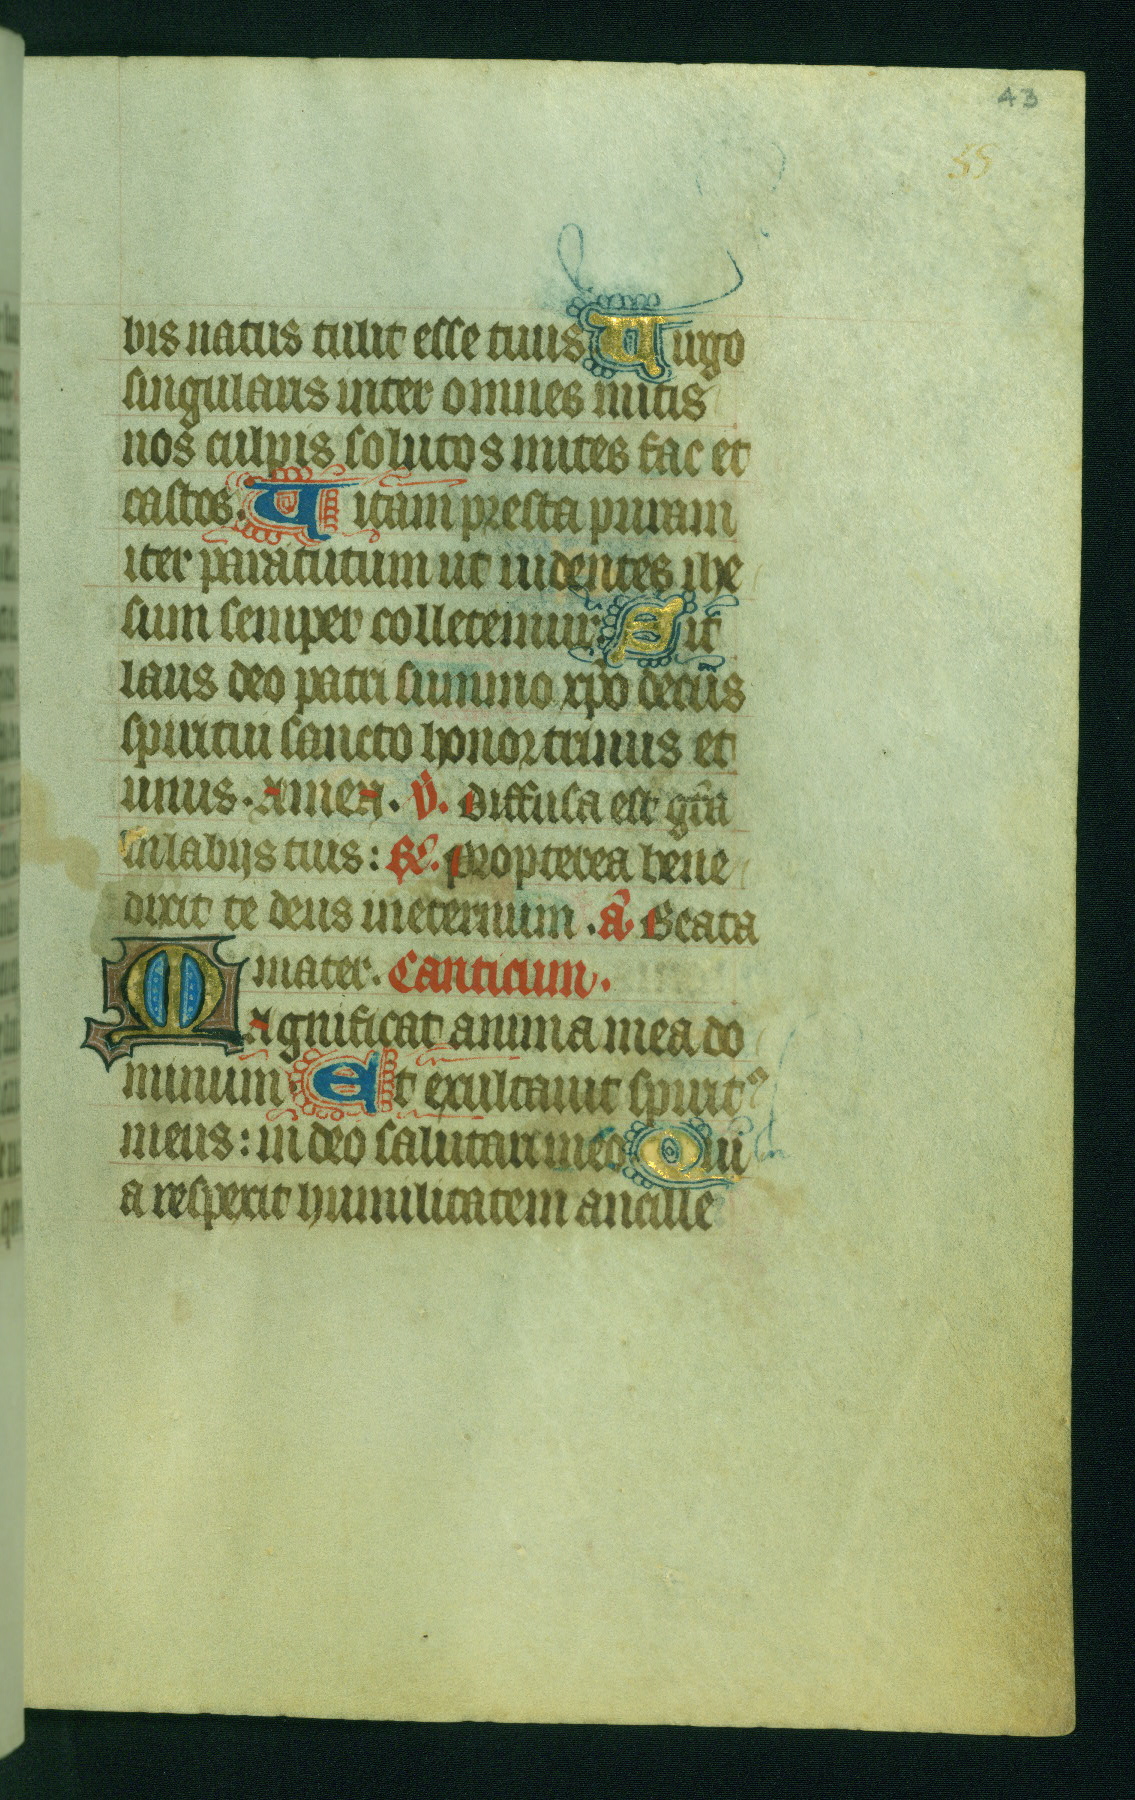 43
55
bis natus tulit esse tuus Uirgo
singularis inter omnes mitis
nos culpis solutos mites fac et
castos. Uitam presta puram
iter para tutum ut uidentes ihe
sum semper colletemur. Sit
laus deo patri summo xpo decus
spiritui sancto honor trinus et
unus. Amen. V̄. Diffusa est gr̄a
in labijs tuis: R. Propterea bene
dixit te deus in eternum. a᷉. Beata
mater. Canticum.
Magnificat anima mea do
minum Et exultauit spiritꝰ
meus: in deo salutari meo Qui
a respexit humilitatem ancille